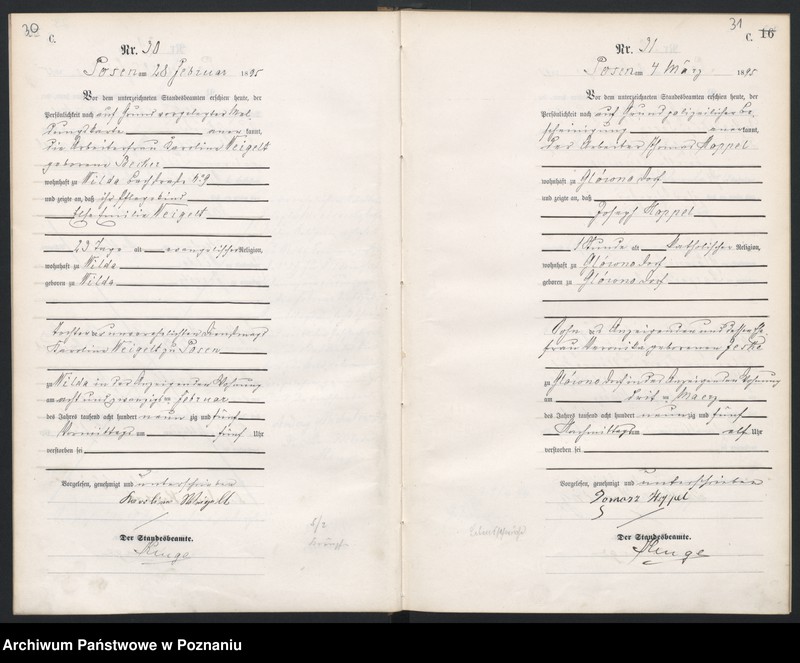 30
C.
Nr. 30
Posen am 28 Februar 1895
Vor dem unterzeichneten Standesbeamten erschien heute, der
Persönlichkeit nach auf Grund vorgelegter Mel
dungskarte anerkannt,
die Arbeiterfrau Karoline Weigelt
geborene Becker
wohnhaft zu Wilda
und zeigte an, daß ihr Pflegekind
Else Emilie Weigelt
23 Tage alt evangelischer Religion,
wohnhaft zu Wilda
geboren zu Wilda
Tochter der unverehelichten Dienstmagd
Karoline Weigelt zu Posen
zu Wilda in der Anzeigenden Wohnung
am acht und zwanzigten Februar
des Jahres tausend acht hundert neunzig und fünf
Vormittags um fünf Uhr
verstorben sei
Vorgelesen, genehmigt und unterschrieben
Karoline Weigelt
Der Standesbeamte.
31
C. 16
Nr. 31
Posen am 4 März 1895
Vor dem unterzeichneten Standesbeamten erschien heute, der
Persönlichkeit nach auf Grund polizeilicher Be
scheinigung anerkannt,
der Arbeiter Thomas Happel
wohnhaft zu Glowno Dorf
und zeigte an, daß
Joseph Happel
1 Stunde alt katholischer Religion,
wohnhaft zu Glowno Dorf
geboren zu Glowno Dorf
Sohn des Anzeigenden und dessen Ehe
frau Veronika geborenen
zu Glowno Dorf in des Anzeigenden Wohnung
am dritten Maerz
des Jahres tausend acht hundert neunzig und fünf
Nachmittags um elf Uhr
verstorben sei
Vorgelesen, genehmigt und unterschrieben
Tomasz
Der Standesbeamte.
Archiwum Państwowe w Poznaniu